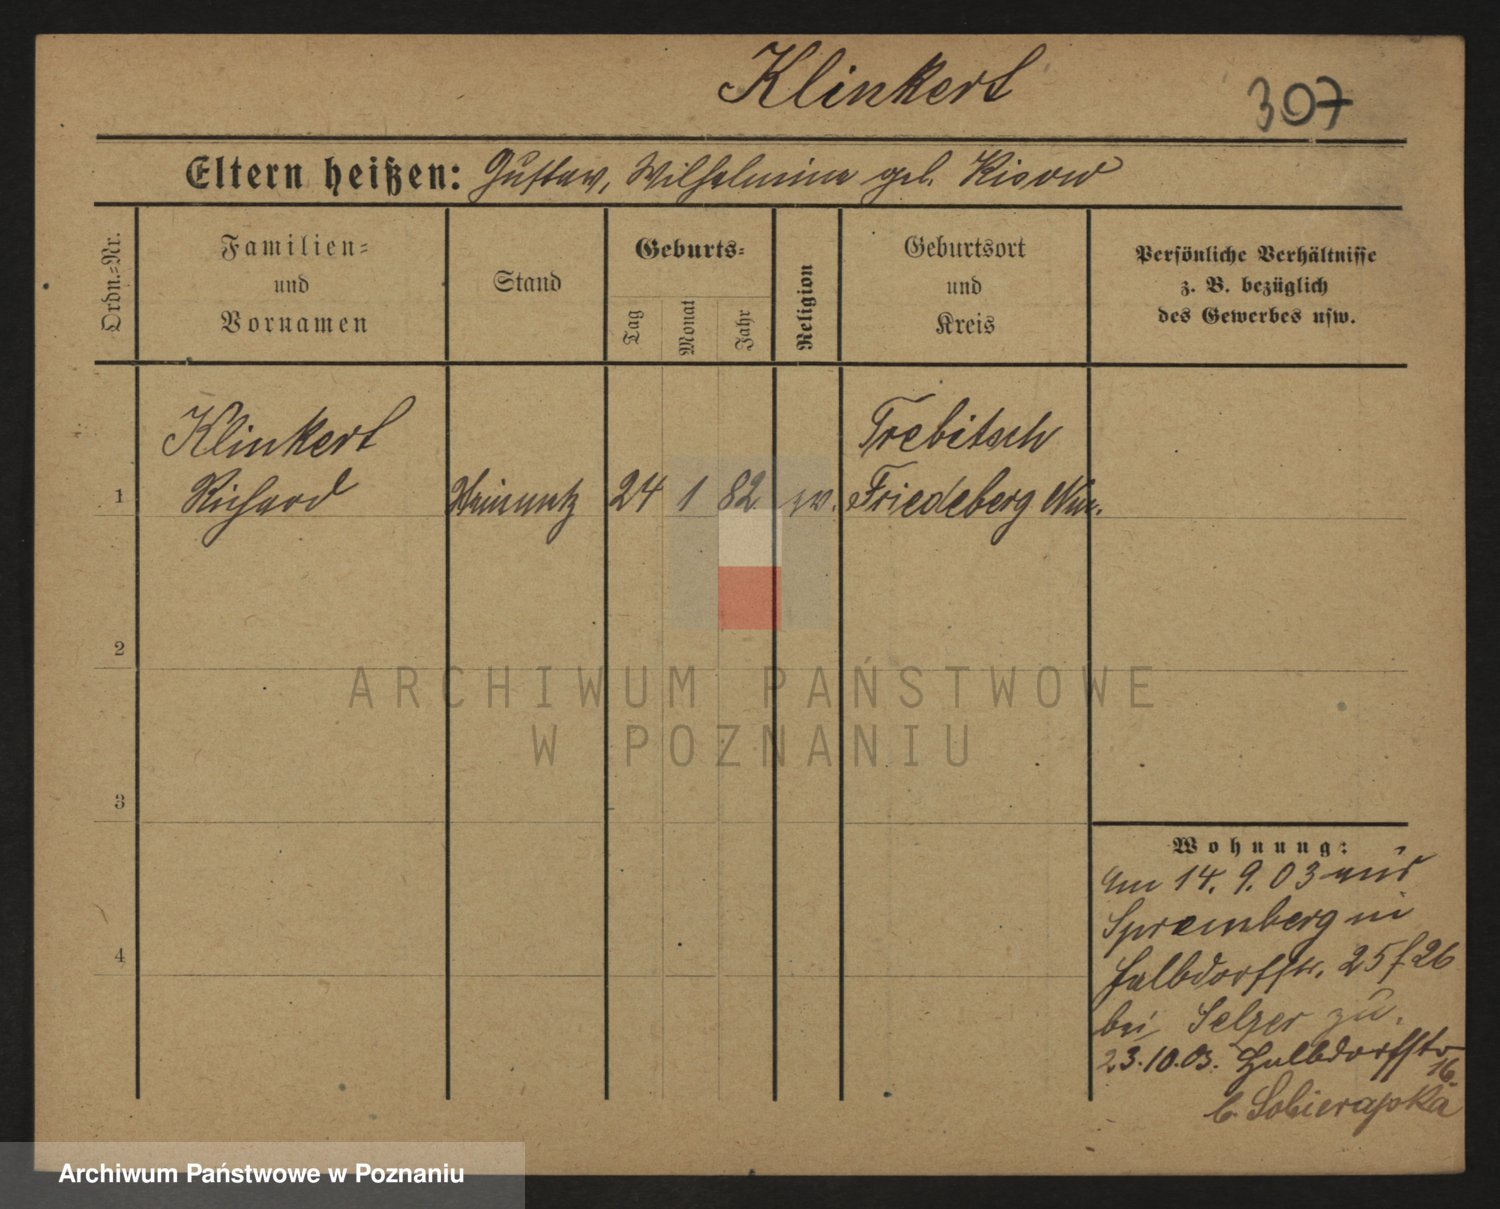 Klinkert
307
Eltern heißen: Gustav, Wilhelmine geb. Kisow
Ordn.-Nr.
Familien-
und
Vornamen
Stand
Geburts-
Tag
Monat
Jahr
Religion
Geburtsort
und
Kreis
Persönliche Verhältnisse
z. B. bezüglich
des Gewerbes usw.
Klinkert
Trebitsch
1 Richard 24 1 82 ev. Friedeberg Nm.
2
3
4
Wohnung:
am 14. 9. 03 aus
Spremberg in
Halbdorfstr. 25/26
bei Selzer zu.
23.10.03. Halbdorfstr
16
b.
ARCHIWUM PAŃSTWOWE
W POZNANIU
Archiwum Państwowe w Poznaniu